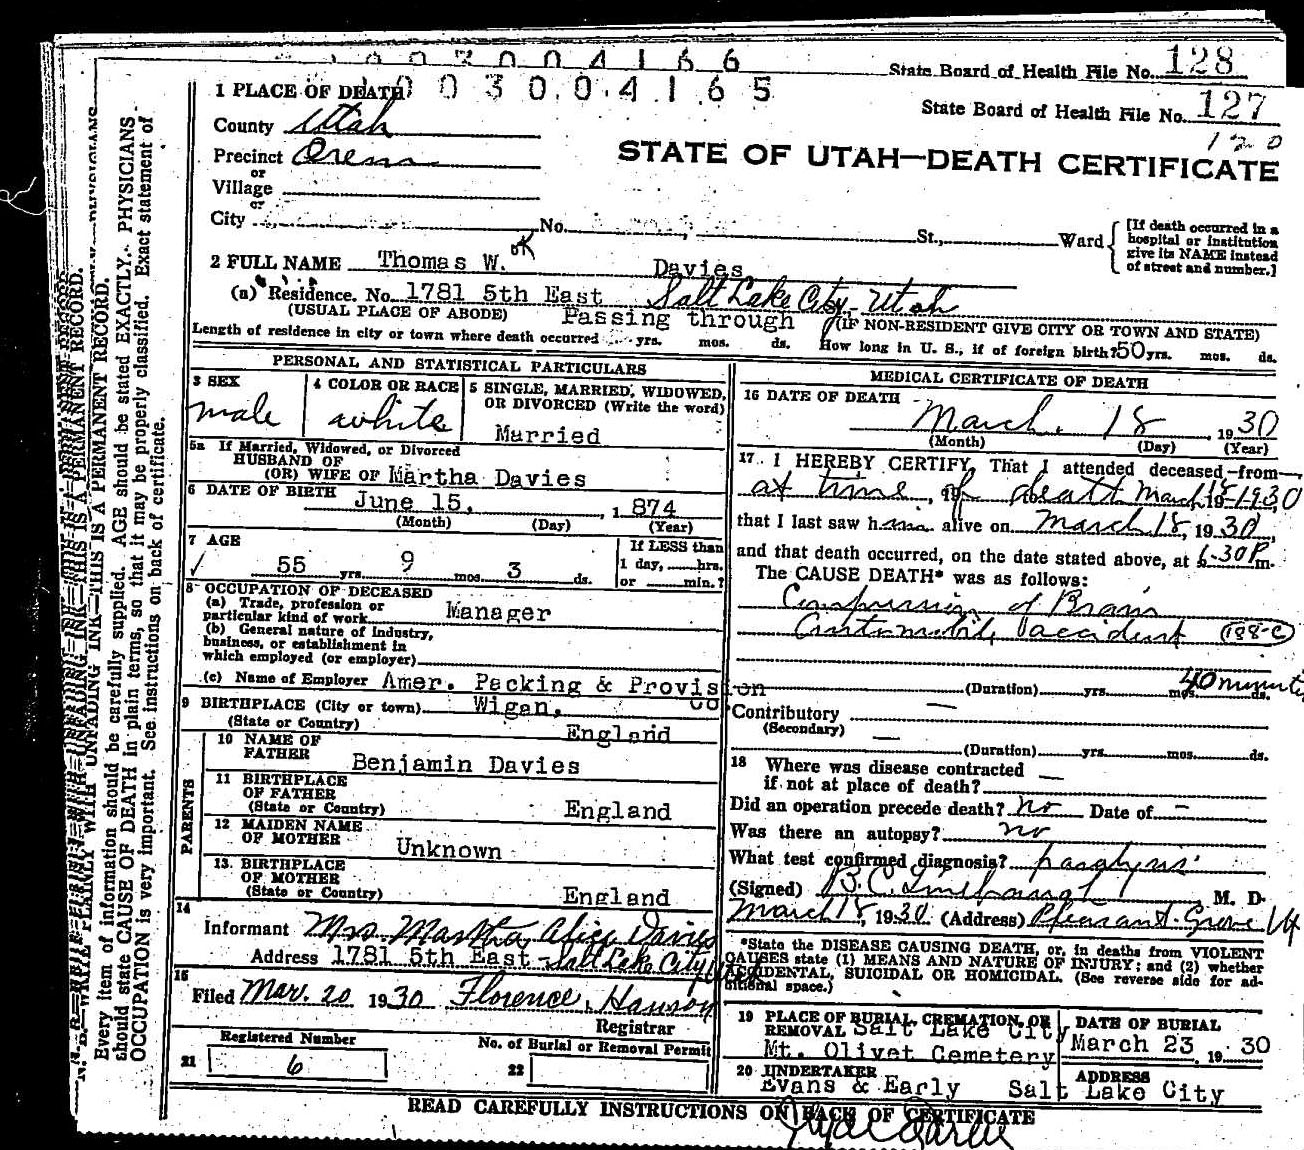 0 0 3 0 0 4 1 6 6
State Board of Health File No. 128
1 PLACE OF DEATH 0 0 3 0 0 4 1 6 5
State Board of Health File No. 127
120
County Utah
Precinct Orem
or
Village
or
City No. St., Ward
[If death occurred in a hospital or institution give its NAME instead of street and number.]
STATE OF UTAH—DEATH CERTIFICATE
2 FULL NAME Thomas W. OK Davies
(a) Residence. No. 1781 5th East Salt Lake City, Utah
(USUAL PLACE OF ABODE) Passing through (IF NON-RESIDENT GIVE CITY OR TOWN AND STATE)
Length of residence in city or town where death occurred yrs. mos. ds. How long in U. S., if of foreign birth? 50 yrs. mos. ds.
PERSONAL AND STATISTICAL PARTICULARS
3 SEX
male
4 COLOR OR RACE
white
5 SINGLE, MARRIED, WIDOWED, OR DIVORCED (Write the word)
Married
5a If Married, Widowed, or Divorced
HUSBAND OF
(OR) WIFE OF Martha Davies
6 DATE OF BIRTH June 15, 1874
(Month) (Day) (Year)
7 AGE
55 yrs. 9 mos. 3 ds.
If LESS than
1 day, hrs.
or min.?
8 OCCUPATION OF DECEASED
(a) Trade, profession or
particular kind of work Manager
(b) General nature of industry,
business, or establishment in
which employed (or employer)
(c) Name of Employer Amer. Packing & Provision
Co.
9 BIRTHPLACE (City or town) Wigan,
(State or Country) England
PARENTS
10 NAME OF
FATHER Benjamin Davies
11 BIRTHPLACE
OF FATHER
(State or Country) England
12 MAIDEN NAME
OF MOTHER Unknown
13. BIRTHPLACE
OF MOTHER
(State or Country) England
14
Informant Mrs. Martha Alice Davies
Address 1781 5th East - Salt Lake City, Utah
15
Filed Mar. 20 1930 Florence Hanson
Registrar
Registered Number
21 6
No. of Burial or Removal Permit
22
MEDICAL CERTIFICATE OF DEATH
16 DATE OF DEATH
March 18, 1930
(Month) (Day) (Year)
17 I HEREBY CERTIFY, That I attended deceased from
at time of death March 18 1930
that I last saw him alive on March 18, 1930,
and that death occurred, on the date stated above, at 6-30 P.m.
The CAUSE DEATH* was as follows:
Compression of Brain
Automobile accident 188-c
(Duration) yrs. mos. ds. 40 minutes
Contributory
(Secondary)
(Duration) yrs. mos. ds.
18 Where was disease contracted
if not at place of death?
Did an operation precede death? no Date of -
Was there an autopsy? no
What test confirmed diagnosis? paralysis
(Signed) B. C. Linebaugh M. D.
March 18, 1930 (Address) Pleasant Grove Ut
*State the DISEASE CAUSING DEATH, or, in deaths from VIOLENT
CAUSES state (1) MEANS AND NATURE OF INJURY; and (2) whether
ACCIDENTAL, SUICIDAL OR HOMICIDAL. (See reverse side for ad-
ditional space.)
19 PLACE OF BURIAL, CREMATION, OR
REMOVAL Salt Lake City
Mt. Olivet Cemetery
DATE OF BURIAL
March 23 1930
20 UNDERTAKER
Evans & Early
ADDRESS
Salt Lake City
READ CAREFULLY INSTRUCTIONS ON BACK OF CERTIFICATE
N. B.—WRITE PLAINLY WITH UNFADING INK—THIS IS A PERMANENT RECORD.
Every item of information should be carefully supplied. AGE should be stated EXACTLY. PHYSICIANS
should state CAUSE OF DEATH in plain terms, so that it may be properly classified. Exact statement of
OCCUPATION is very important. See instructions on back of certificate.